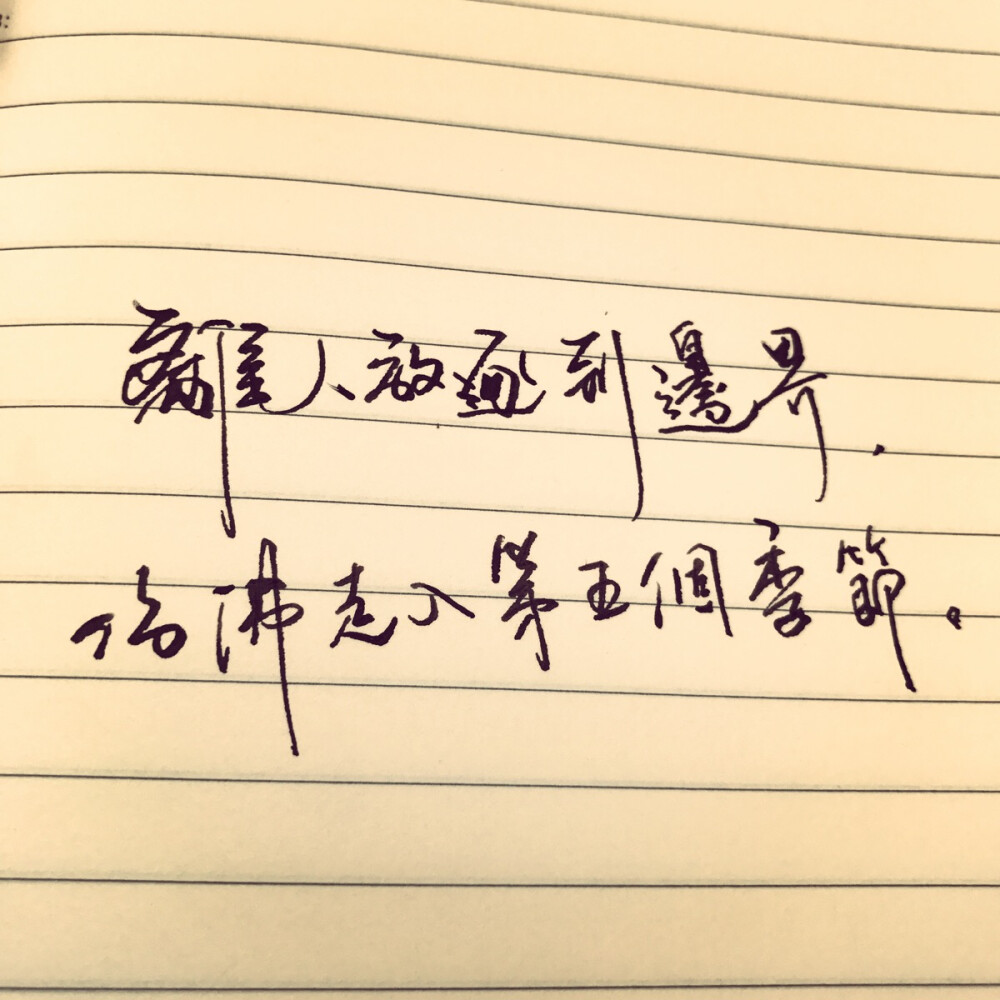 離人放逐到邊界.
彷彿走入第五個季節。